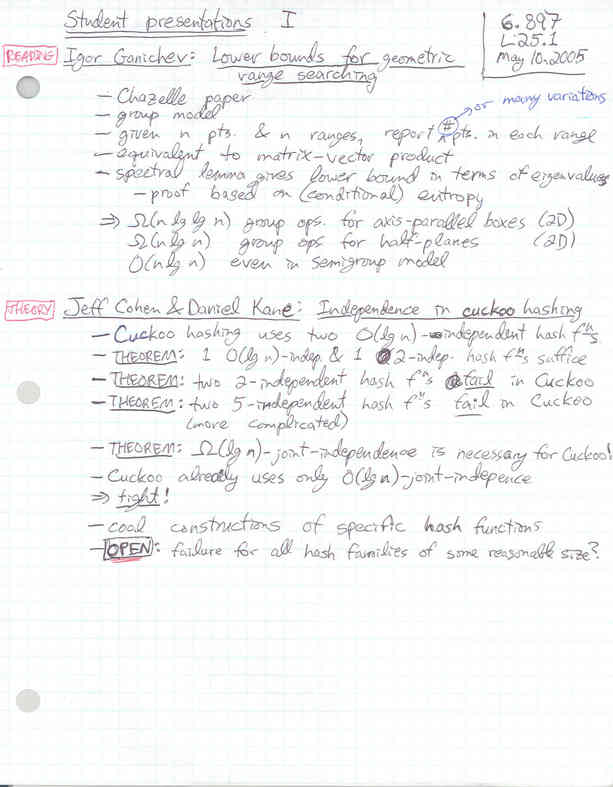 Student presentations I
6.897
L25.1
May 10, 2005
READING Igor Ganichev: Lower bounds for geometric
range searching
- Chazelle paper
- group model
or many variations
- given n pts. & n ranges, report # pts. in each range
- equivalent to matrix-vector product
- spectral lemma gives lower bound in terms of eigenvalues
- proof based on (conditional) entropy
⇒ Ω(n lg lg n) group ops. for axis-parallel boxes (2D)
Ω(n lg n) group ops for half-planes (2D)
O(n lg n) even in semigroup model
THEORY Jeff Cohen & Daniel Kane: Independence in cuckoo hashing
- Cuckoo hashing uses two O(lg n)-independent hash fⁿs.
- THEOREM: 1 O(lg n)-indep. & 1 2-indep. hash fⁿs suffice
- THEOREM: two 2-independent hash fⁿs fail in Cuckoo
- THEOREM: two 5-independent hash fⁿs fail in Cuckoo
(more complicated)
- THEOREM: Ω(lg n)-joint-independence is necessary for Cuckoo!
- Cuckoo already uses only O(lg n)-joint-indepence
⇒ tight!
- cool constructions of specific hash functions
- OPEN: failure for all hash families of some reasonable size?